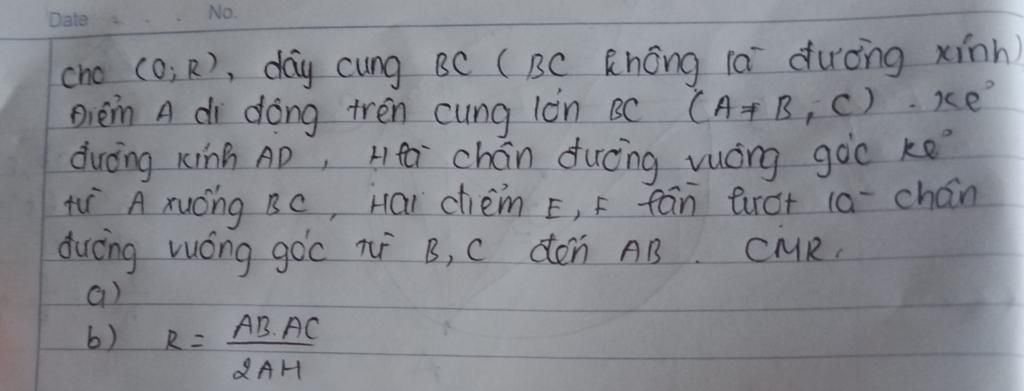 Date No.
cho (O; R), dây cung BC ( BC không là đường kính)
Điểm A di động trên cung lớn BC (A ≠ B, C). kẻ
đường kính AD, H là chân đường vuông góc kẻ
từ A xuống BC, Hai điểm E, F lần lượt là chân
đường vuông góc từ B, C đến AB. CMR.
a)
b) R = AB.AC / 2AH